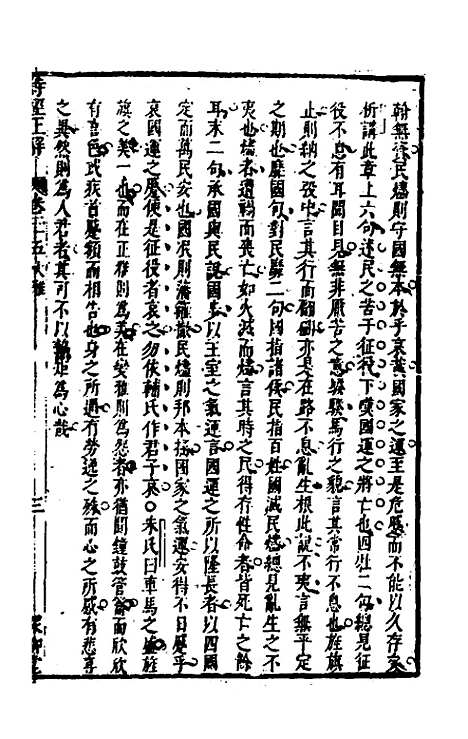 翰無civ民燼則守國無本於乎哀哉國家之運至是危蹙而不能以久存矣
析講此章上六句述民之苦于征役下嘆國運之將亡也四牡二句總見征
役不息有耳聞目見無非厭苦之意騤騤馬行之貌言其常行不息也旌旗
止則納之弢中言其行而翩翩亦是在路不息亂生根此說不夷言無平定
之期也靡國句對民靡二句國指諸侯民指百姓國滅民燼總見亂生之不
夷也燼者遭禍而喪亡如火滅而燼言其時之民得存性命者皆死亡之餘
耳末二句承國與民說國步以王室之氣運言國運之所以隆長者以四國
定而萬民安也國泯則藩籬撤民燼則邦本撥國家之氣運安得不日蹙乎
哀國運之蹙便是征役者哀之勿依輔氏作君子哀○朱氏曰車馬之盛旌
旗之美一也而在正雅則為美在變雅則為怨者亦猶聞鐘鼓管籥而欣欣
有喜色或疾首蹙頞而相告也身之所遇有勞逸之殊而心之所感有悲喜
之異然則為人君者其可不以絜矩為心哉
詩經正解 卷二十五大雅 三